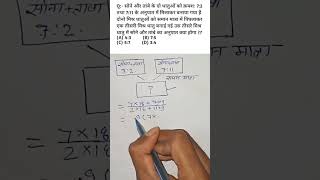 Q:- सोने और तांबे के दो धातुओं को क्रमश: 7:2
तथा 7:11 के अनुपात में मिलाकर बनाया गया है
दोनों मिश्र धातुओं को समान मात्रा में मिलाकर
एक तीसरी मिश्र धातु बनाई गई उस तीसरे मिश्र
धातु में सोने और तांबे का अनुपात क्या होगा ??
(A) 5:3 (B) 7:5
(C) 5:7 (D) 3:5
7:2
7:11
समान मात्रा
?
= 7×18 + 7×9
2×18 + 11×9
=
7×18
2×18